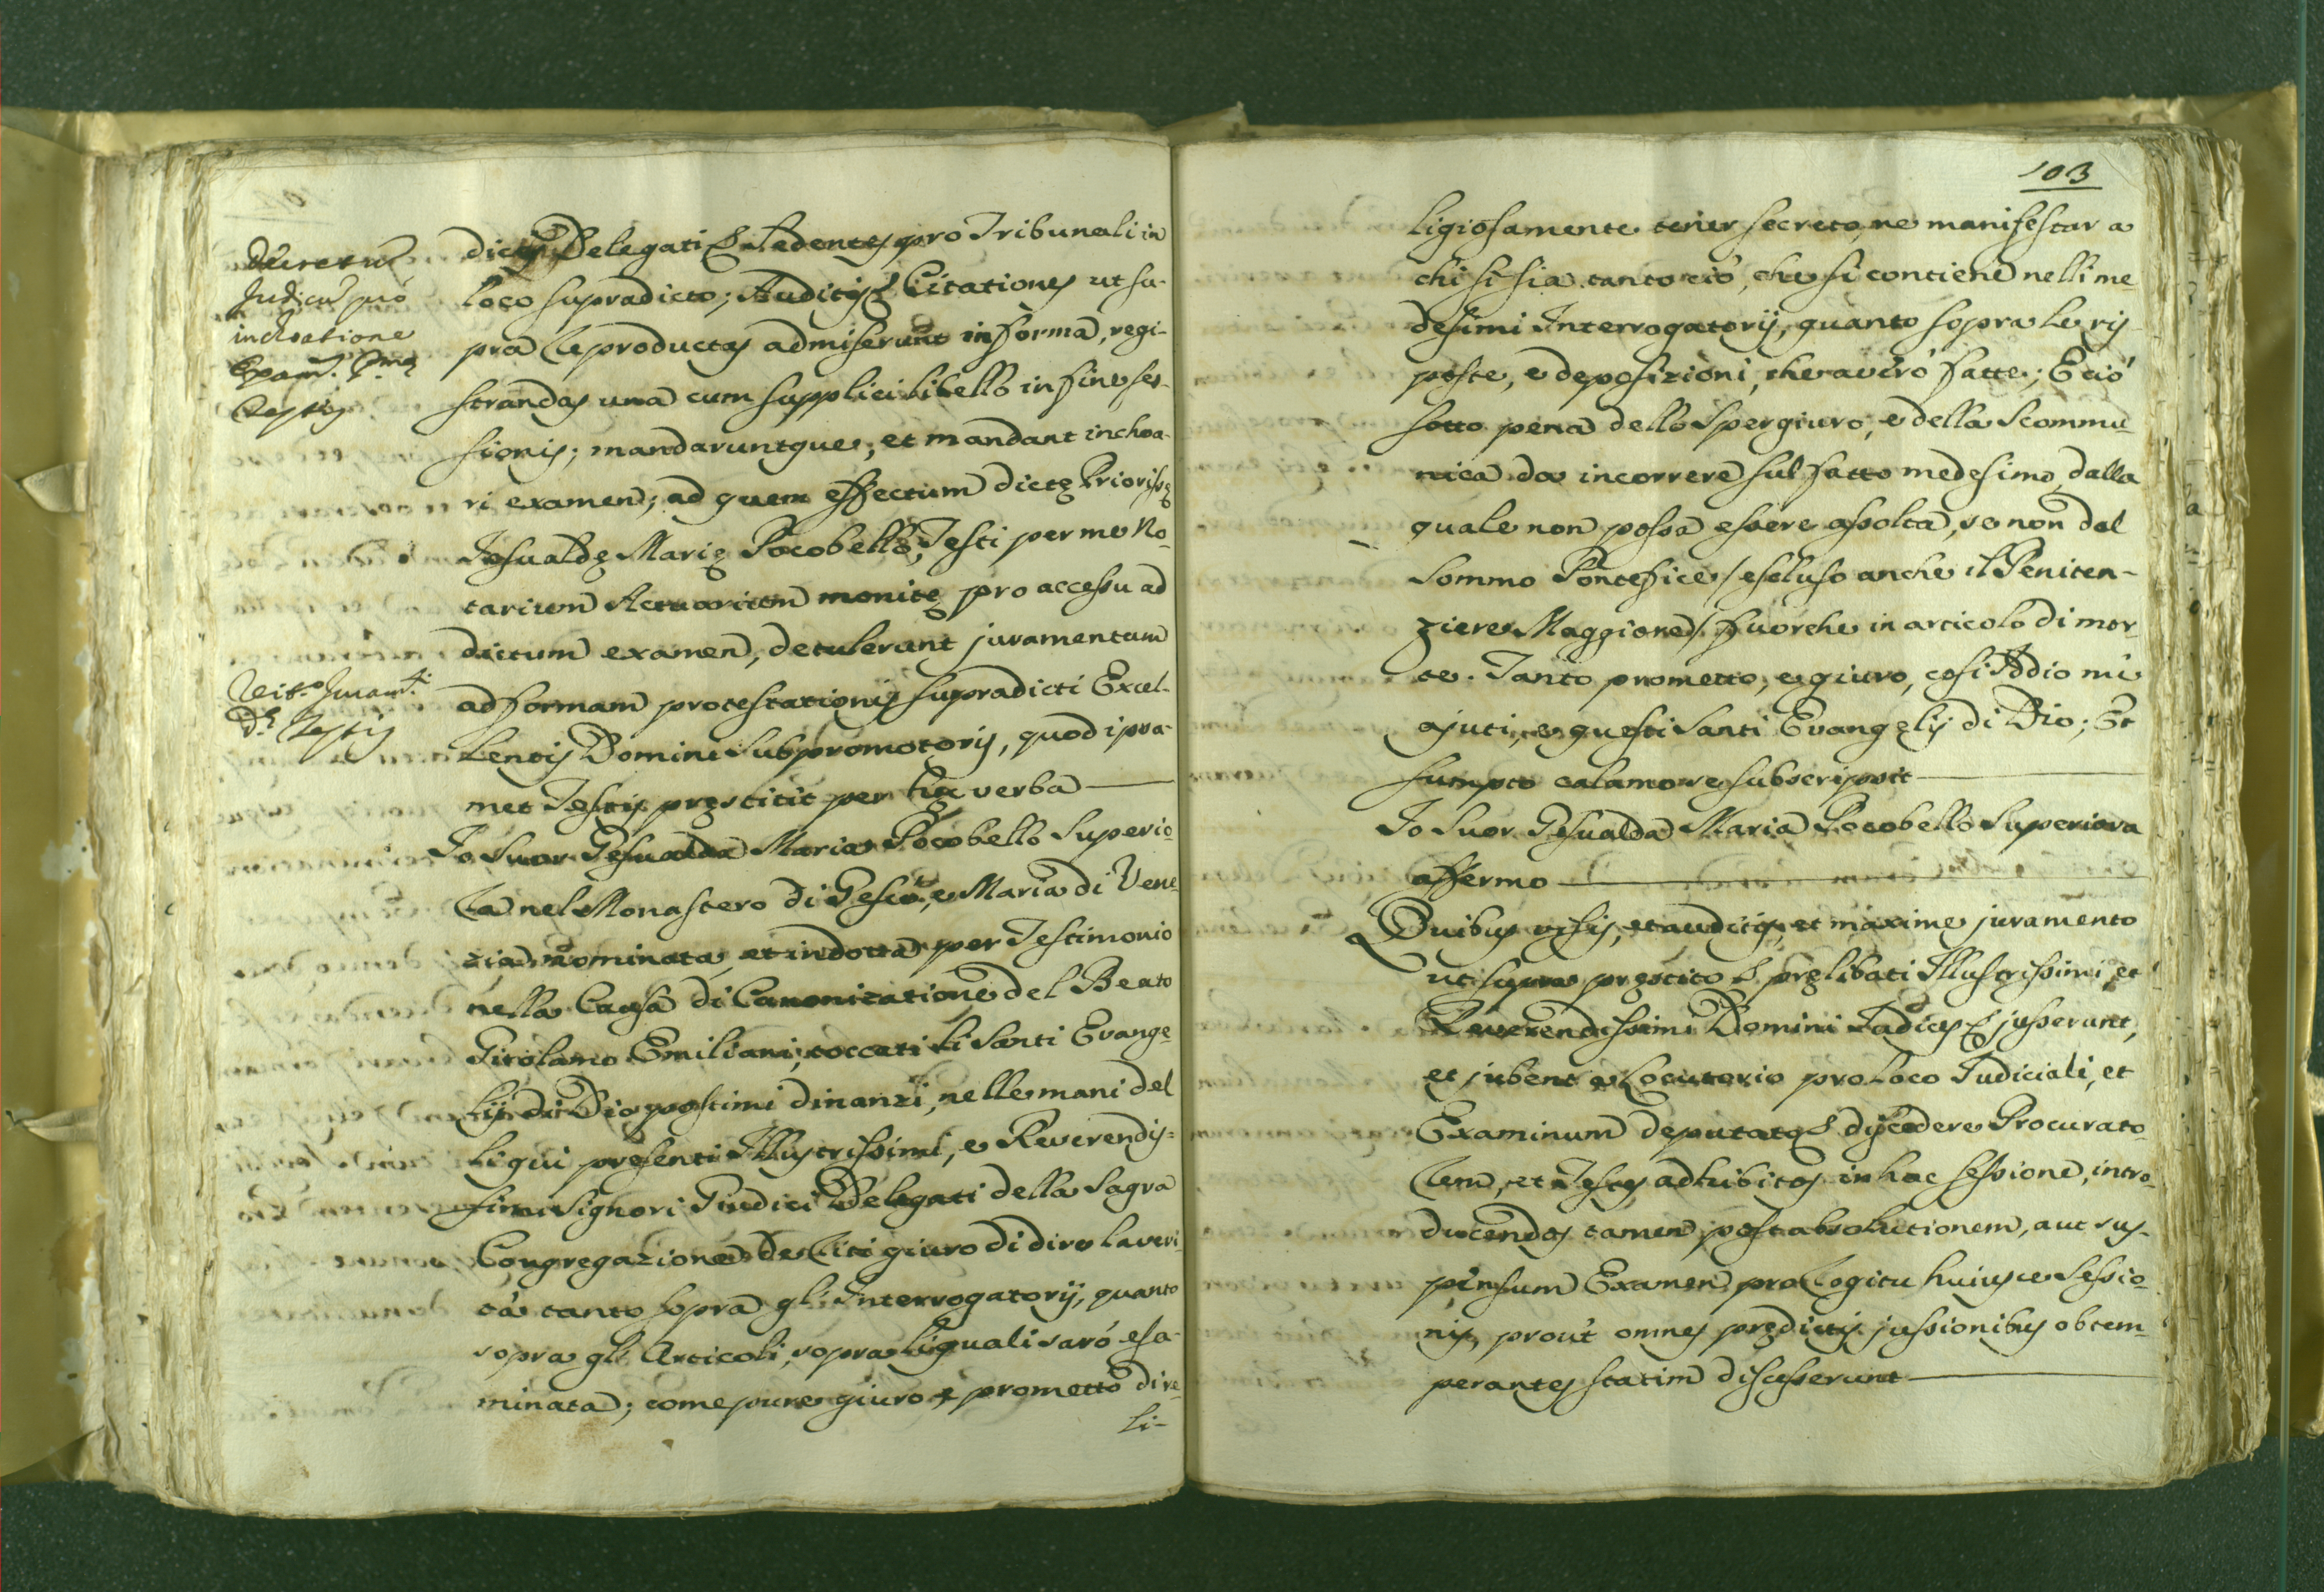 Decretum
Judicum pro
inchoatione
Exam. pmę
Testis
dictis Delegati &. sedentes pro Tribunali in
loco supradicto; Auditis &. Citationes ut su-
pra reproductas admiserunt in forma, regi-
strandas una cum supplici libello in fine ses-
sionis; mandaruntque, et mandant inchoa-
ri examen; ad quem effectum dictę Priorissę
Jesualdę Marię Pocobello, Testi per me No-
tarium Actuarium monitę pro accessu ad
dictum examen, detulerunt juramentum
Testis
ad formam protestationis supradicti Excel-
lentis Domini Subpromotoris, quod ipsa-
met Testis pręstitit per hęc verba
Io Suor Gesualda Maria Pocobello Superio-
ra nel Monastero di Gesù, e Maria di Vene-
zia nominata, et indotta per Testimonio
nella Causa di Canonizatione del Beato
Girolamo Emiliani; toccati li Santi Evange-
lij di Dio postimi dinanzi, nelle mani del
li qui presenti Illustrissimi, e Reverendis-
simi Signori Giudici Delegati della Sagra
Congregazione de Riti giuro di dire la veri-
tà tanto sopra gl'Interrogatorij, quanto
sopra gl'Articoli, sopra li quali sarò esa-
minata; come pure giuro e prometto di re-
li-
103
ligiosamente tener secreto, ne manifestar a
chi si sia tanto ciò, che si contiene nelli me
desimi Interrogatorij, quanto sopra le ris
poste, e deposizioni, che averò fatte; E ciò
sotto pena dello Spergiuro, e della Scommu-
nica da incorrere sul fatto medesimo, dalla
quale non possa essere assolta, se non dal
Sommo Pontefice / escluso anche il Peniten-
ziere Maggiore / fuorche in articolo di mor-
te. Tanto prometto, e giuro, cosi Iddio mi
ajuti, e questi Santi Evangelij di Dio; Et
sumpto calamo se subscripsit
Io Suor Gesualda Maria Pocobello Superiora
affermo
Quibus visis, et auditis, et maxime juramento
ut supra pręstito &. pręlibati Illustrissimi, et
Reverendissimi Domini Judices &. jusserunt,
et jubent e Locutorio pro loco Judiciali, et
Examinum deputato &. discedere Procurato-
rem, et Testes adhibitos in hac sessione, intro-
ducendos tamen post absolutionem, aut sus-
pensum Examen pro Rogitu huiusce Sessio-
nis, prout omnes prędictis jussionibus obtem-
perantes statim discesserunt